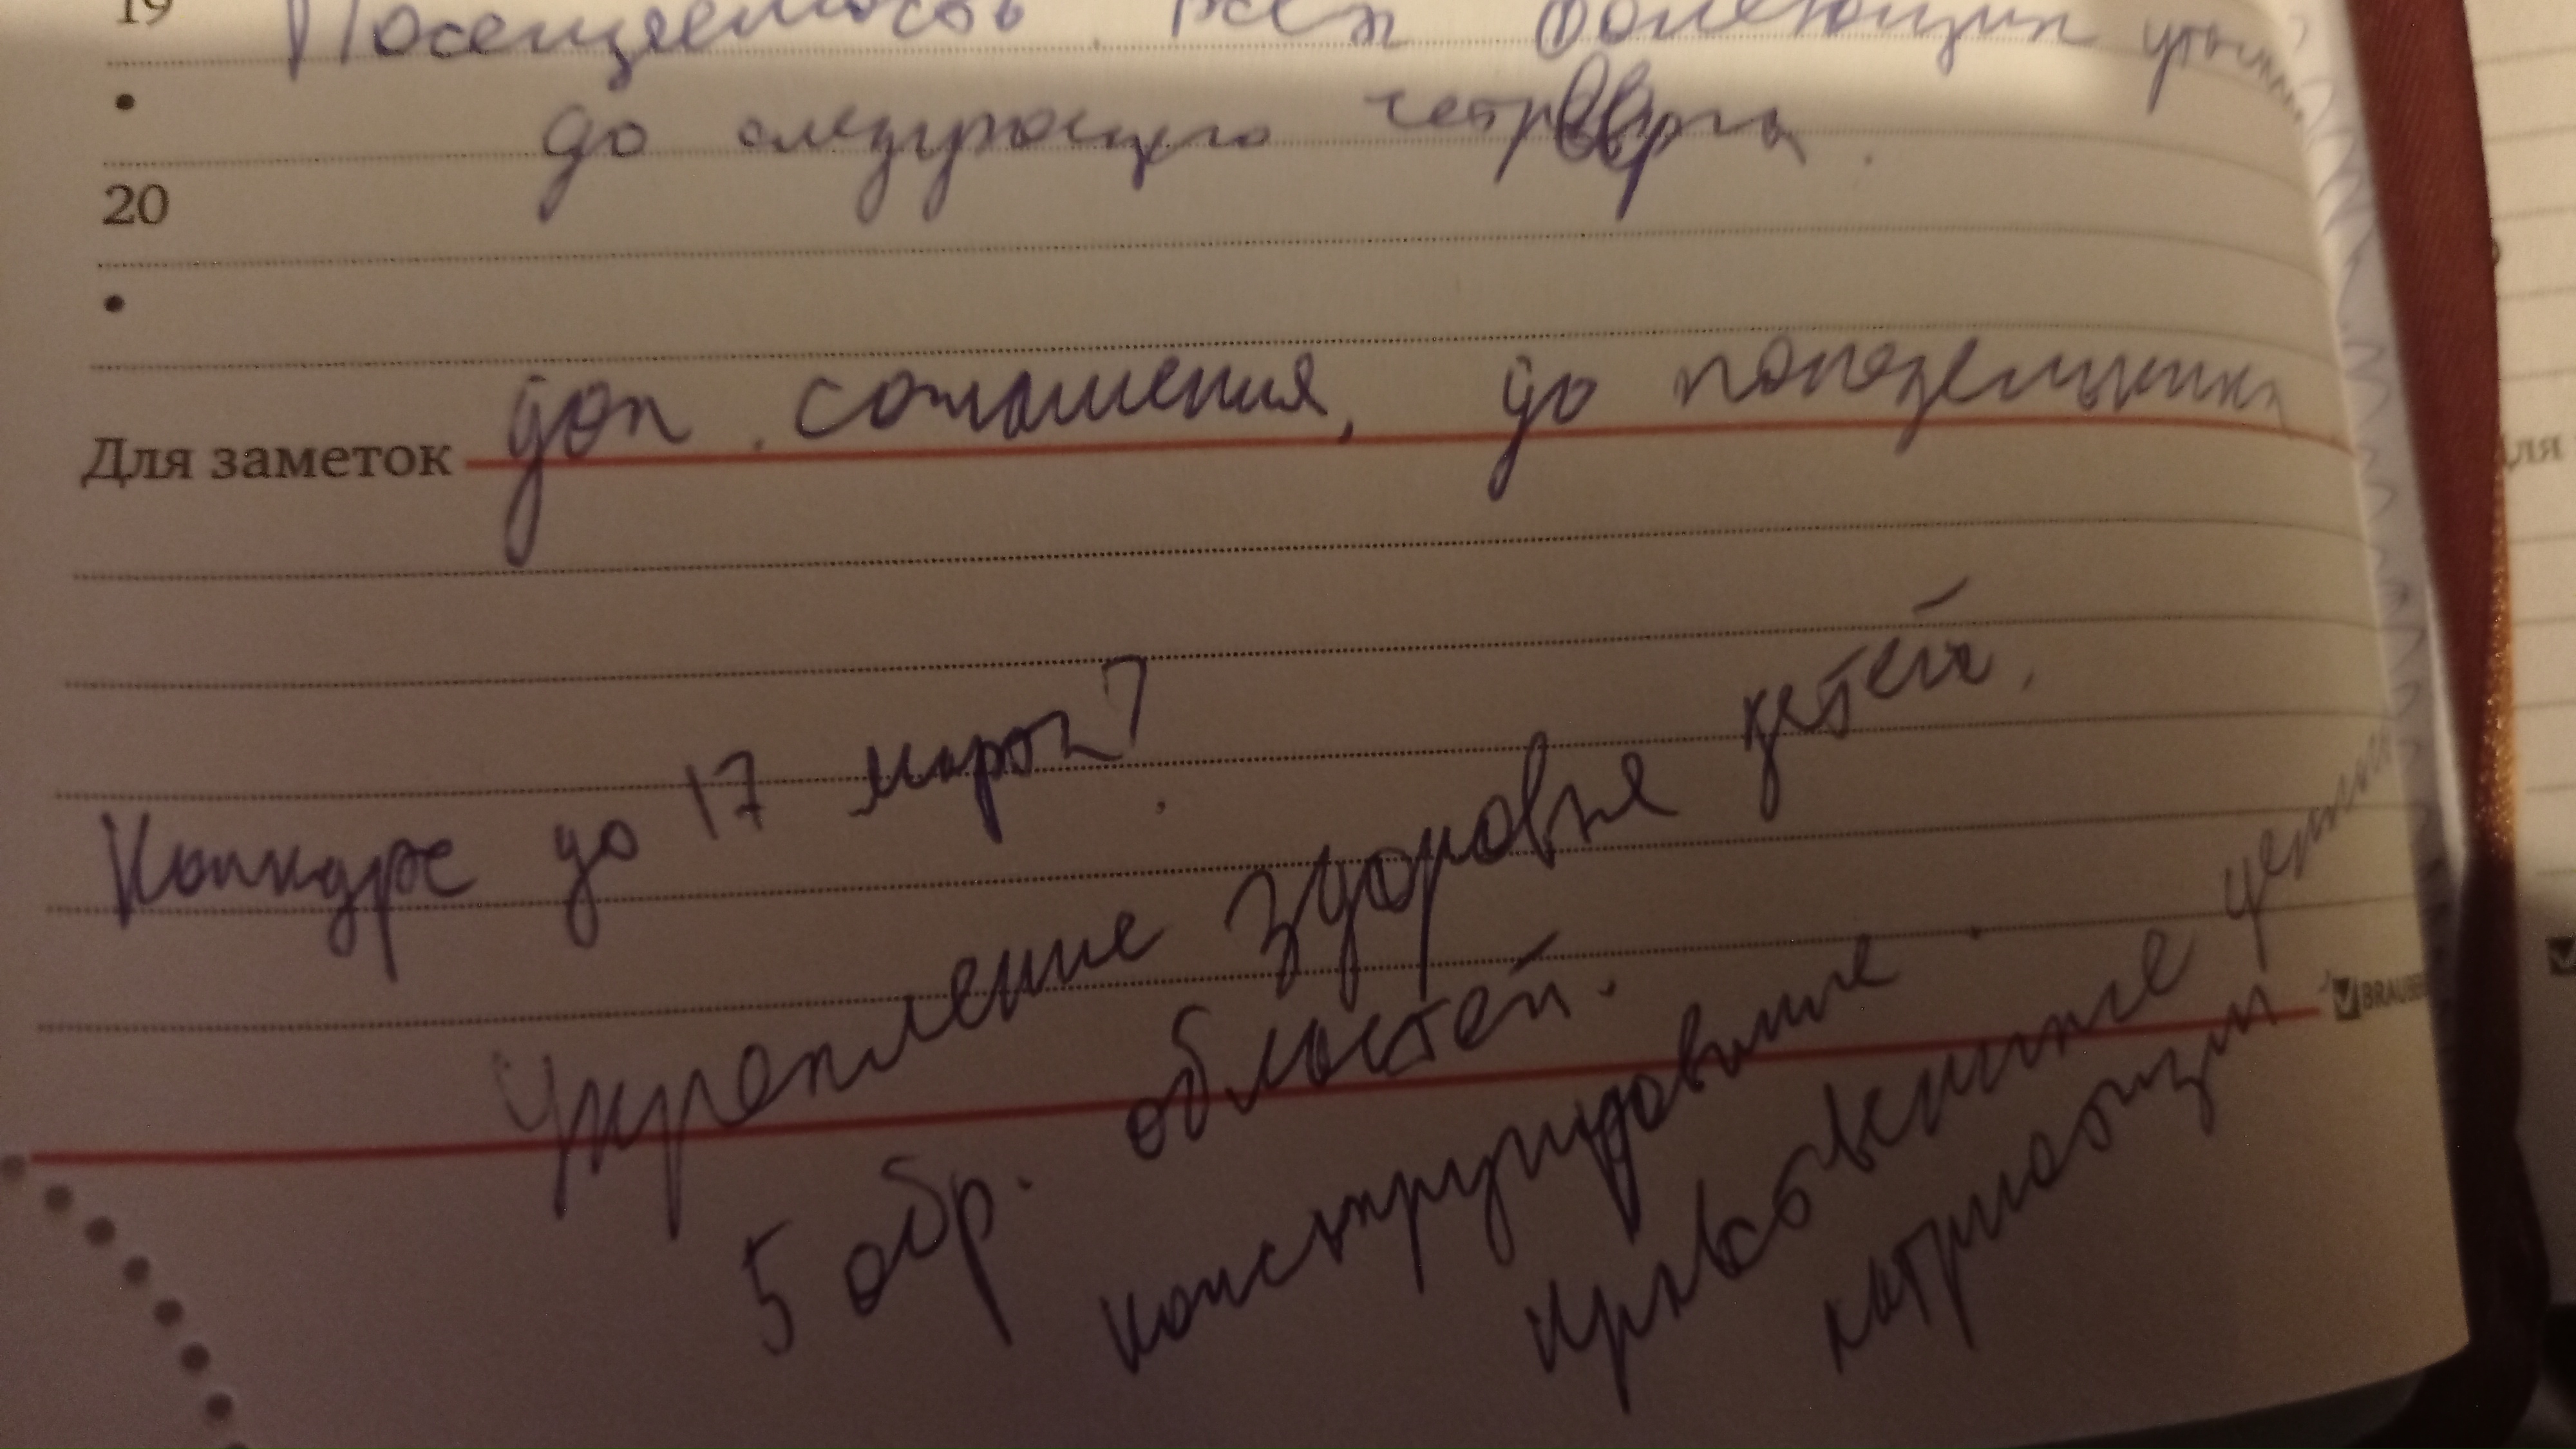 19
Посещаемость. Всех болеющих
до следующего четверга.
20
Для заметок доп. соглашения, до понедельника
Конкурс до 17 марта?
Укрепление здоровья детей.
5 обр. областей.
конструирование.
нравственные ценности
патриотизм
BRAUBE